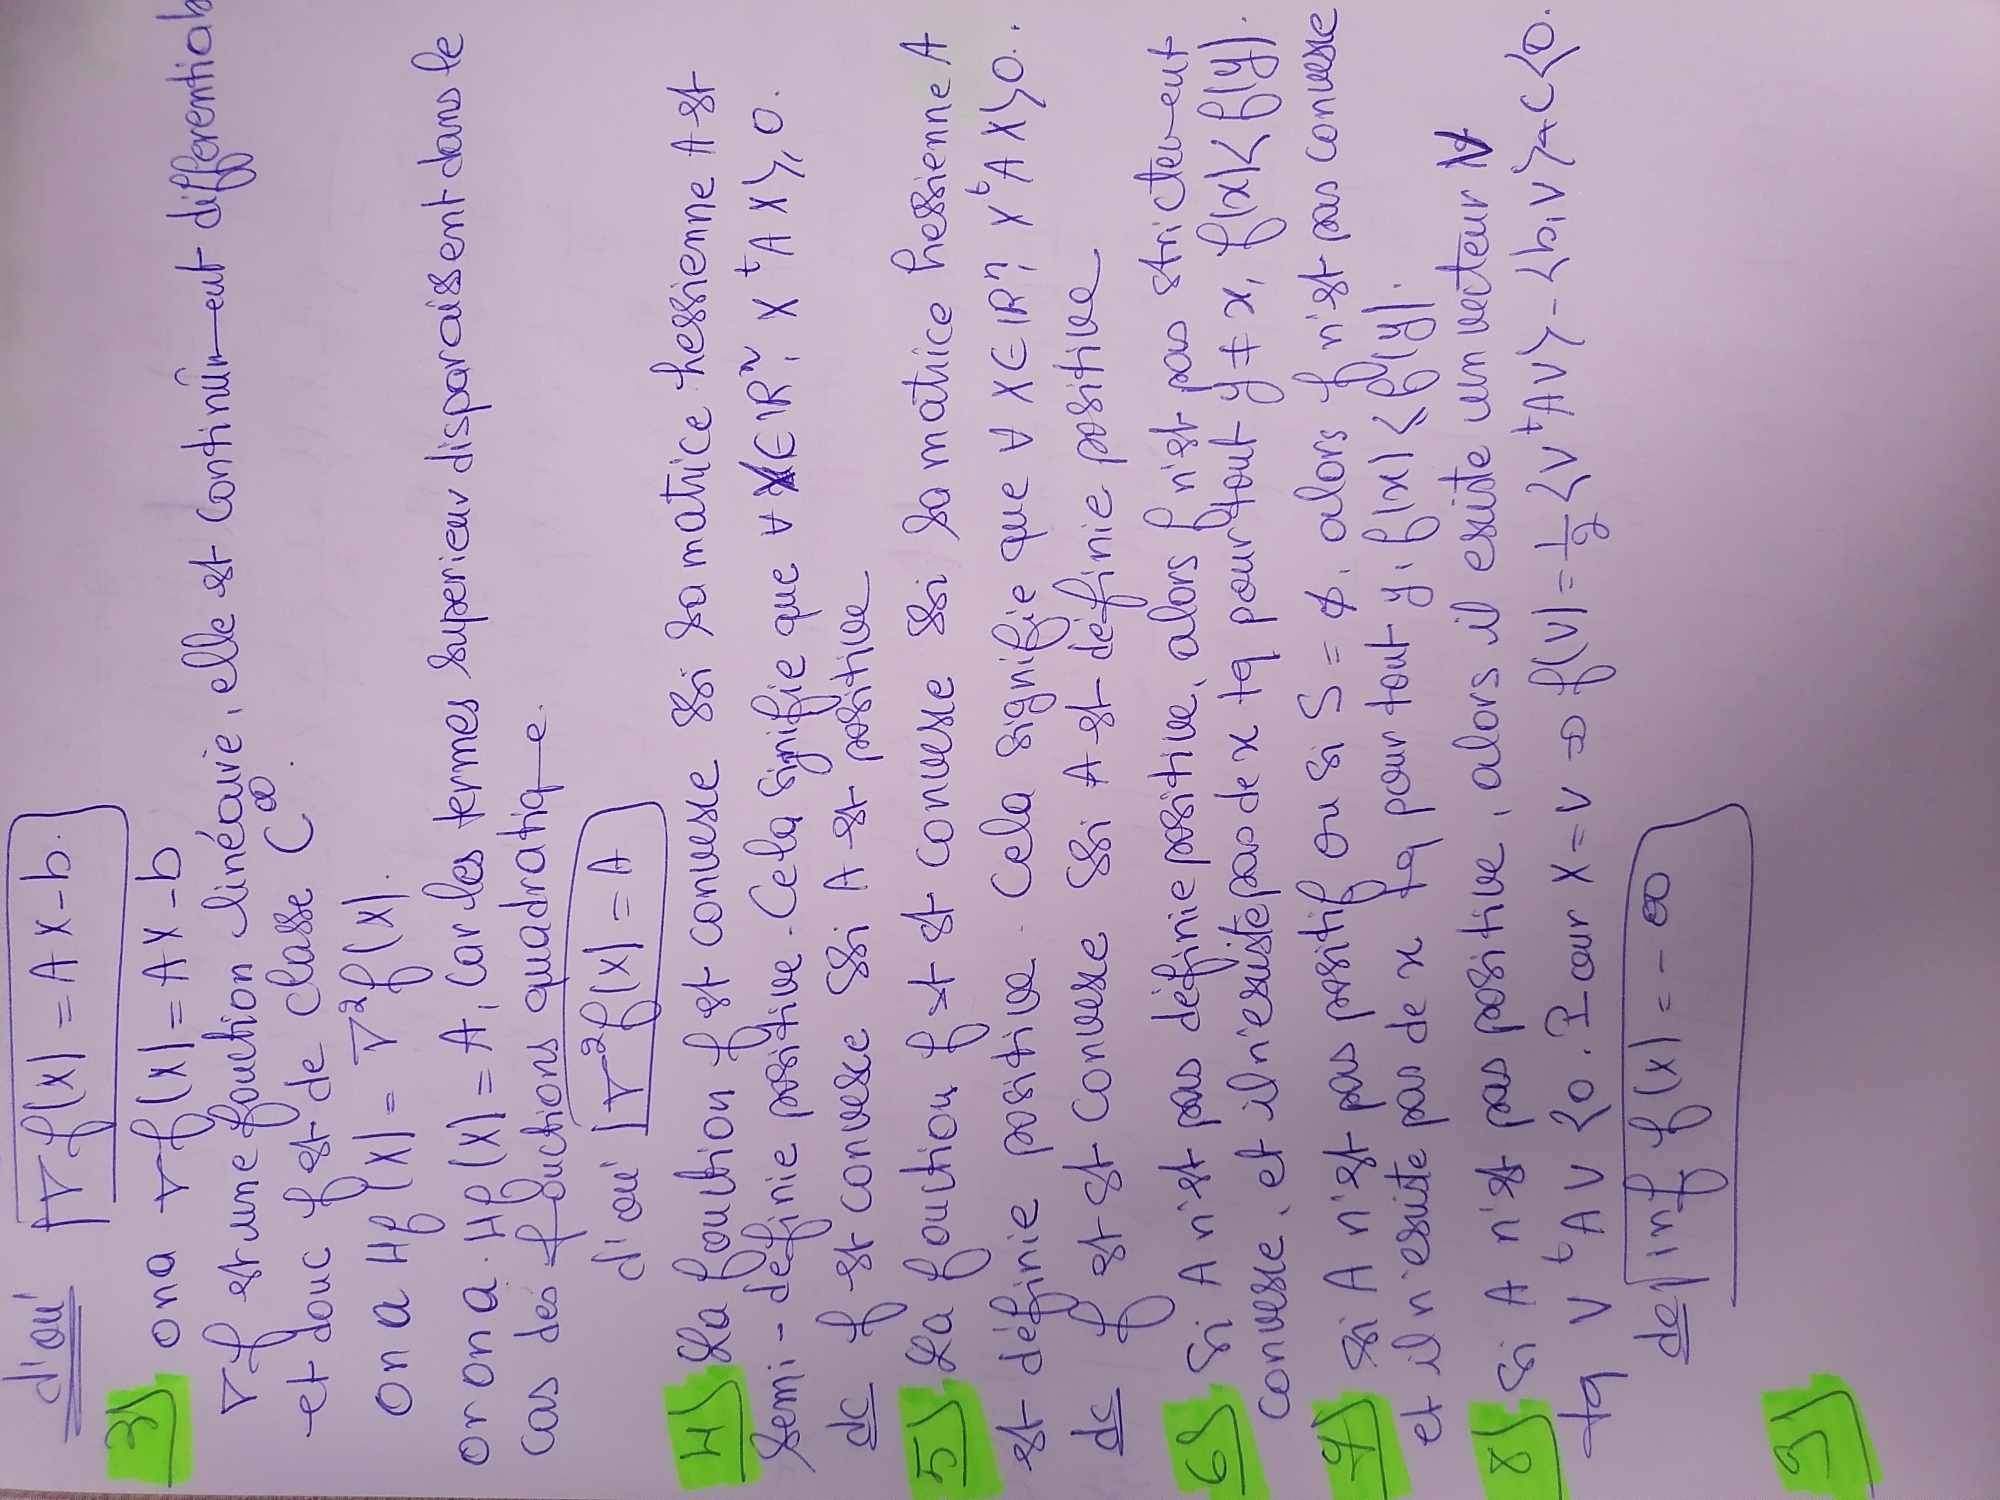 d'où ∇f(x) = Ax-b.
3) on a ∇f(x) = Ax-b
∇f est une fonction linéaire, elle est continûment différentiab
et donc f est de classe C^∞.
on a Hf(x) = ∇²f(x).
or on a Hf(x) = A, car les termes superieur disparaissent dans le
cas des fonctions quadratique.
d'où ∇²f(x) = A
4) La fonction f est convexe ssi sa matrice hessienne A est
semi-définie positive. Cela signifie que ∀ X∈IRⁿ, X ᵗA X ⩾ 0.
dc f est convexe ssi A est positive
5) La fonction f est convexe ssi sa matrice hessienne A
est définie positive. Cela signifie que ∀ X∈IRⁿ, X ᵗA X > 0.
dc f est convexe ssi A est définie positive
6) Si A n'est pas définie positive, alors f n'est pas strictement
convexe, et il n'existe pas de x tq pour tout y ≠ x, f(x) < f(y).
7) Si A n'est pas positif ou si S = ∅, alors f n'est pas convexe
et il n'existe pas de x tq pour tout y, f(x) ≤ f(y).
8) Si A n'est pas positive, alors il existe un vecteur V
tq V ᵗAV <0. Pour X = V ⇒ f(V) = 1/2 <V ᵗAV> - <b,V> + c <0.
dc inf f(x) = -∞
9)